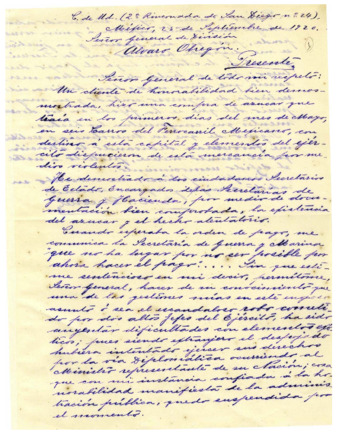 C. de Ud. (2ª Rinconada de San Diego nº 24)
México, 23 de Septiembre de 1920.
Señor General de División
Alvaro Obregón.
Presente
Señor General de todo mi respeto:
Un cliente de honorabilidad bien demos-
trada, hizo una compra de azúcar que
hacía en los primeros días del mes de Mayo,
en seis carros del Ferrocarril Mexicano, con
destino a esta capital y elementos del ejér-
cito dispusieron de esta mercancía por me-
dio violento.
He demostrado a los ciudadanos Secretarios
de Estado, Encargados de las Secretarías de
Guerra y Hacienda, por medio de docu-
mentación bien comprobada, la existencia
del azúcar y el hecho
Cuando esperaba la orden de pago, me
comunica la Secretaría de Guerra y Marina
que no ha lugar por no ser posible por
ahora hacer el pago.... Sin que esti-
me sentencioso en mi decir, permítame
Señor General, hacer de su conocimiento que
una de las gestiones mías en este
asunto ó sea el escandaloso robo cometi-
do por altos jefes del Ejército, ha sido
dificultades con elementos
pues siendo extranjero el despojado
hubiera intentado ejercer su derecho
por la vía Diplomática ocurriendo al
Ministro representante de su Nación; cosa
que con mi instancia confiada a la ho-
norabilidad manifiesta de la adminis-
tración pública, quedó suspendida, por
el momento.